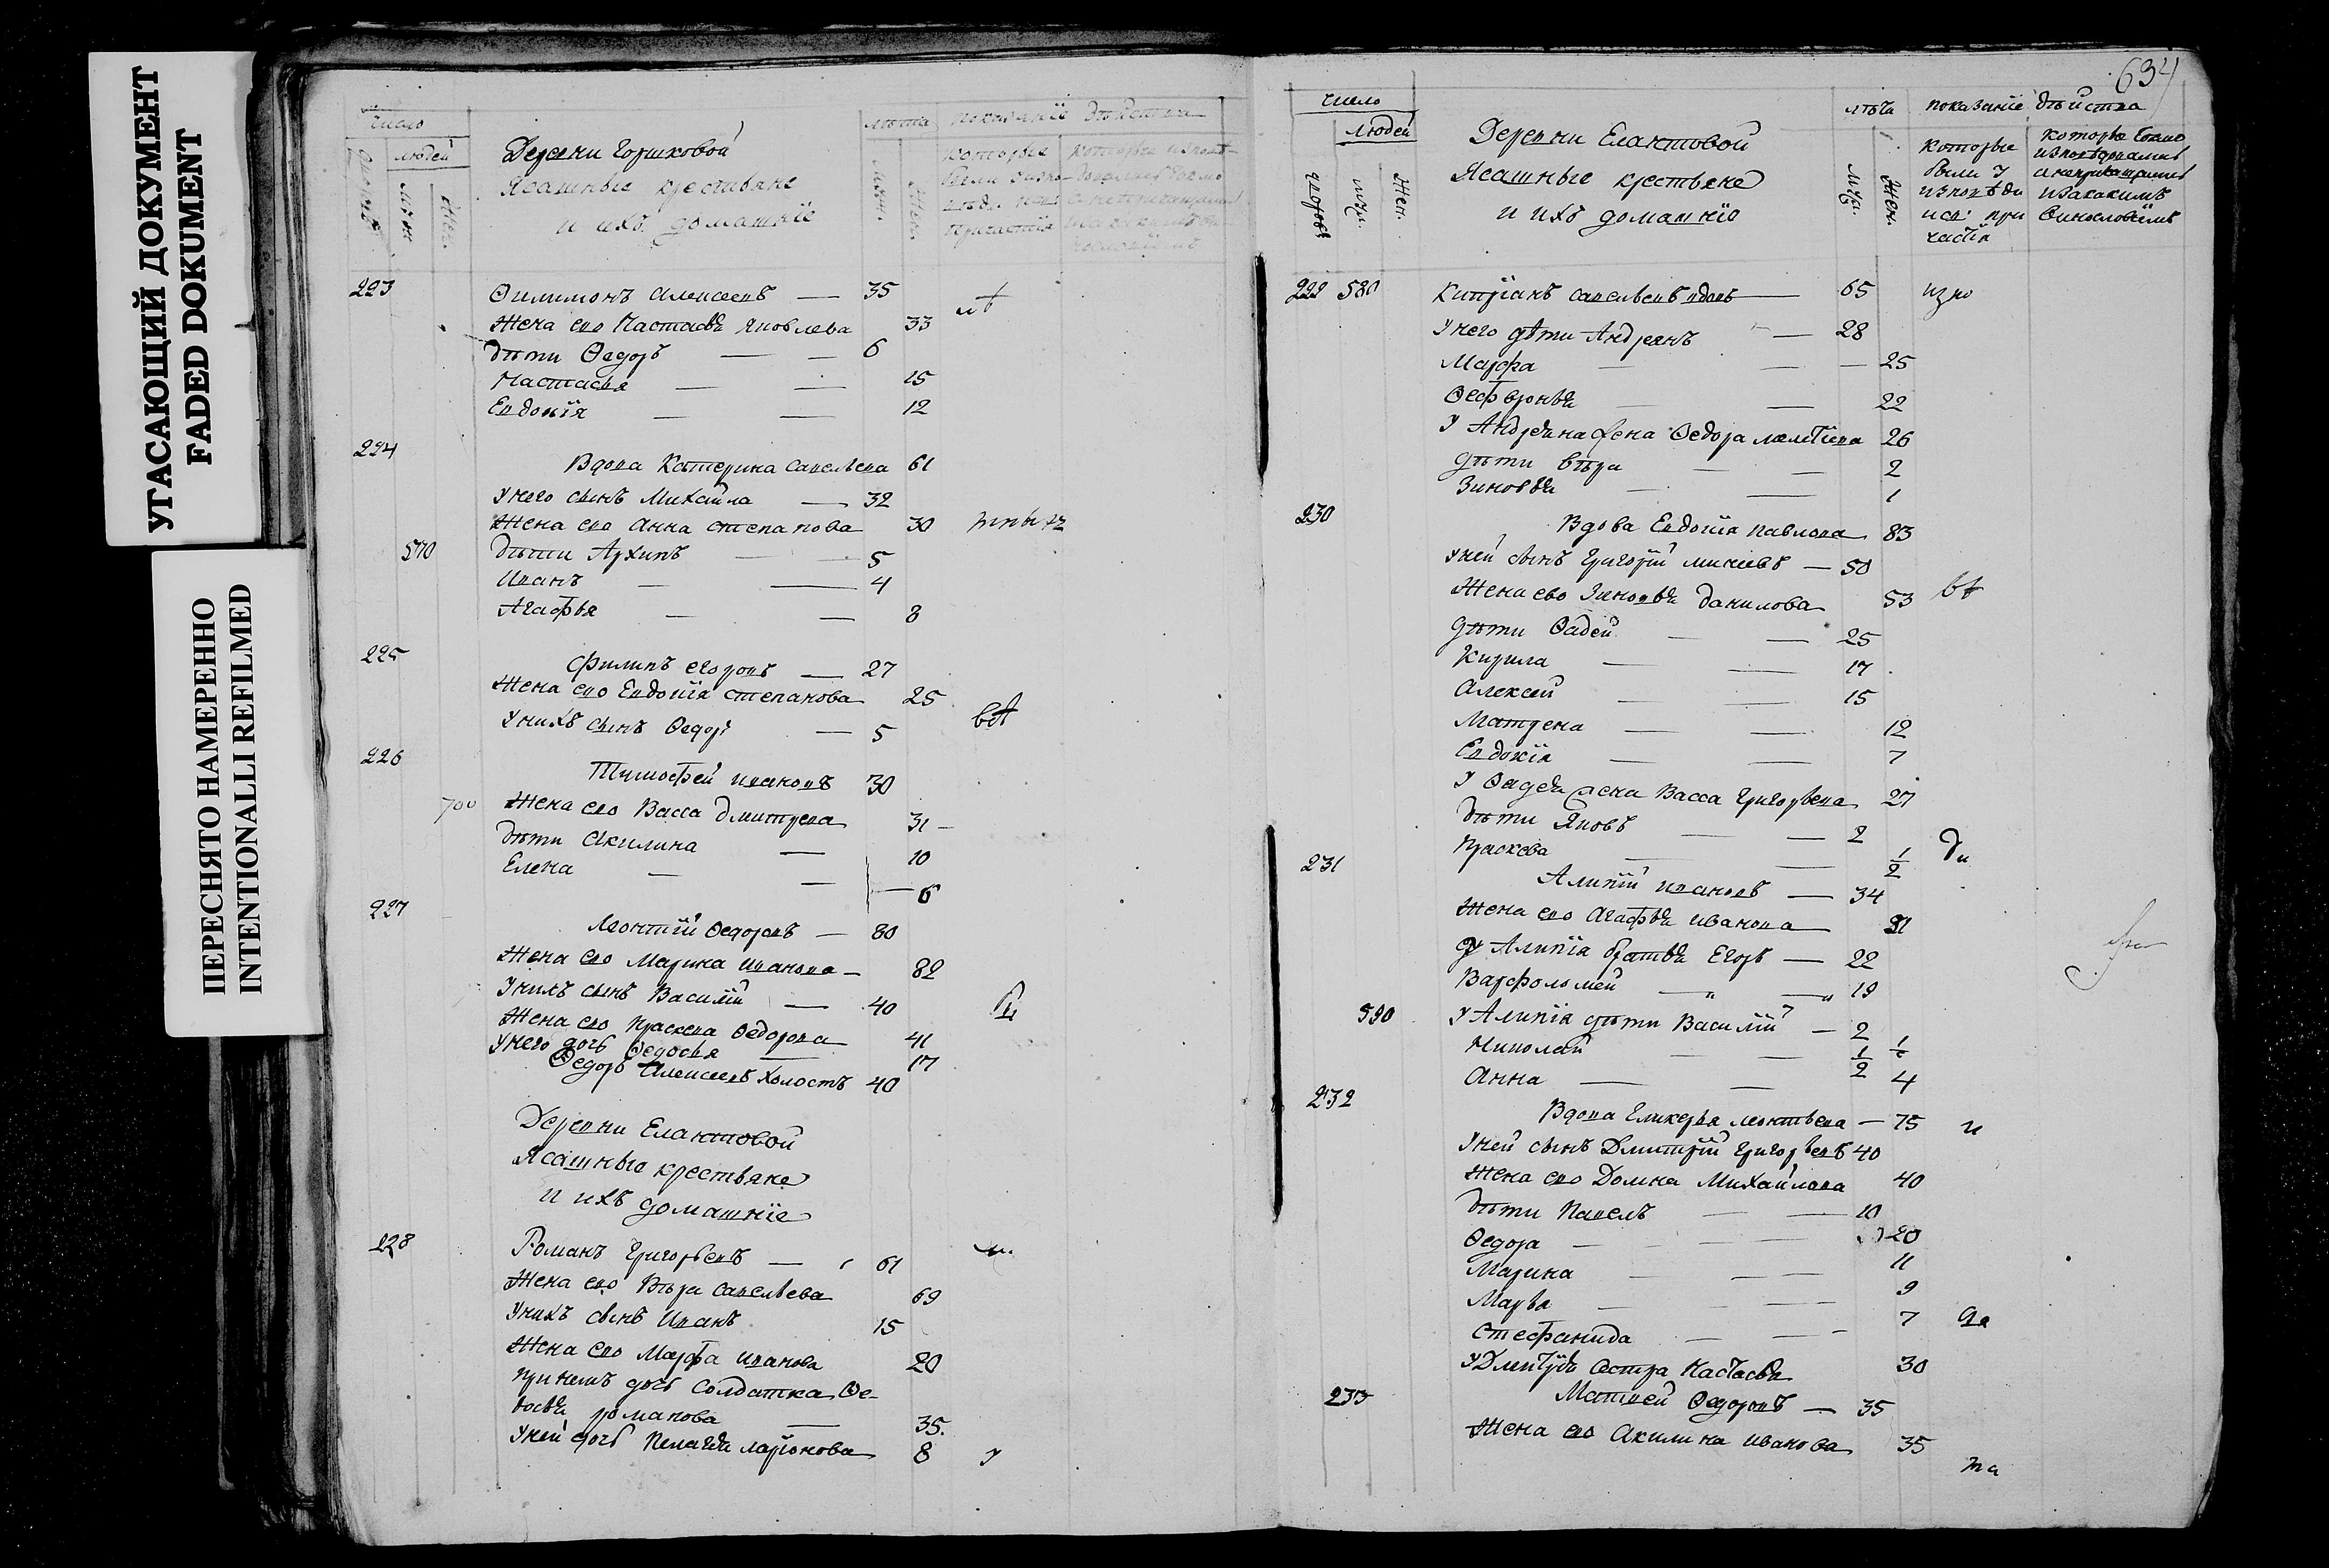 УГАСАЮЩИЙ ДОКУМЕНТ
FADED DOKUMENT
ПЕРЕСНЯТО НАМЕРЕННО
INTENTIONALLI REFILMED
число
людей
муж
жен.
Деревни Горшковой
Ясашные крестьяне
и ихъ домашнїе
лѣта
муж.
жен.
показанїе действа
223 Филимонъ Алексеевъ — 35
Жена ево Настасья Яковлева 33
Дѣти Ѳедоръ — — 6
Настасья — — 15
Евдокїя — — 12
224
Вдова Катерина Савельева 61
У него сынъ Михайла — 32
Жена ево Анна Степанова 30
570 Дѣти Архипъ — 5
Иванъ — — 4
Агафья — — 8
225
Филипъ Егоровъ — 27
Жена ево Евдокїя Степанова 25
У нихъ сынъ Ѳедоръ — 5
226
Тимофей Ивановъ 30
700 Жена ево Васса Дмитрева 31 —
Дѣти Акилина — 10
Елена — — 6
227
Леонтїй Ѳедоровъ — 80
Жена ево Марина Иванова — 82
У нихъ сынъ Василїй — 40
Жена ево Праскева Ѳедорова 41
У него дочь Ѳедосья — 17
Ѳедоръ Алексеевъ холостъ 40
Деревни Елантовой
Ясашные крестьяне
и ихъ домашнїе
228 Романъ Григорьевъ — 61
Жена ево Вѣра Савельева 69
У нихъ сынъ Иванъ 15
Жена ево Марфа Иванова 20
При немъ дочь солдатка Ѳе-
досья Романова — 35.
У ней дочь Пелагѣя Ларїонова 8 у
634
число
людей
дворовъ
муж.
жен.
Деревни Елантовой
Ясашные крестьяне
и ихъ домашнїе
лѣта
муж.
жен.
показанїе дѣйства
которые
были у
исповѣди
и св: при
частїя
580 Кипрїанъ Савельевъ вдовъ — 65
У него дѣти Андреянъ — 28
Марфа — — 25
Ѳеферонья — — 22
У Андреяна жена Ѳедора 26
Дѣти Вѣра — — 2
Зиновья — — 1
230
Вдова Евдокїя Павлова 83
У ней сынъ Григорїй Минеевъ — 50
Жена ево Зиновья Данилова 53
Дѣти Фадей — — 25
Кирила — — 17
Алексей — — 15
Матрена — — 12
Евдокїя — — 7
У Фадея жена Васса Григорьева 27
Дѣти Яковъ — — 2
Праскева — — 1/2
231
Алипїй Ивановъ — 34
Жена ево Агафья Иванова 31
У Алипїя братья Егоръ — 22
Варфоломей — — 19
590 У Алипїя дѣти Василїй — 2
Николай — — 1/2
Анна — — 4
232
Вдова Гликерья Леонтьева — 75
У ней сынъ Дмитрїй Григорьевъ 40
Жена ево Домна Михайлова 40
Дѣти Павелъ — — 10
Ѳедора — — 20
Марина — — 11
Марья — — 9
Стефанида — — 7
У Дмитрїя сестра Настасья 30
233
Матвей Ѳедоровъ — 35
Жена ево Акилина Иванова 35